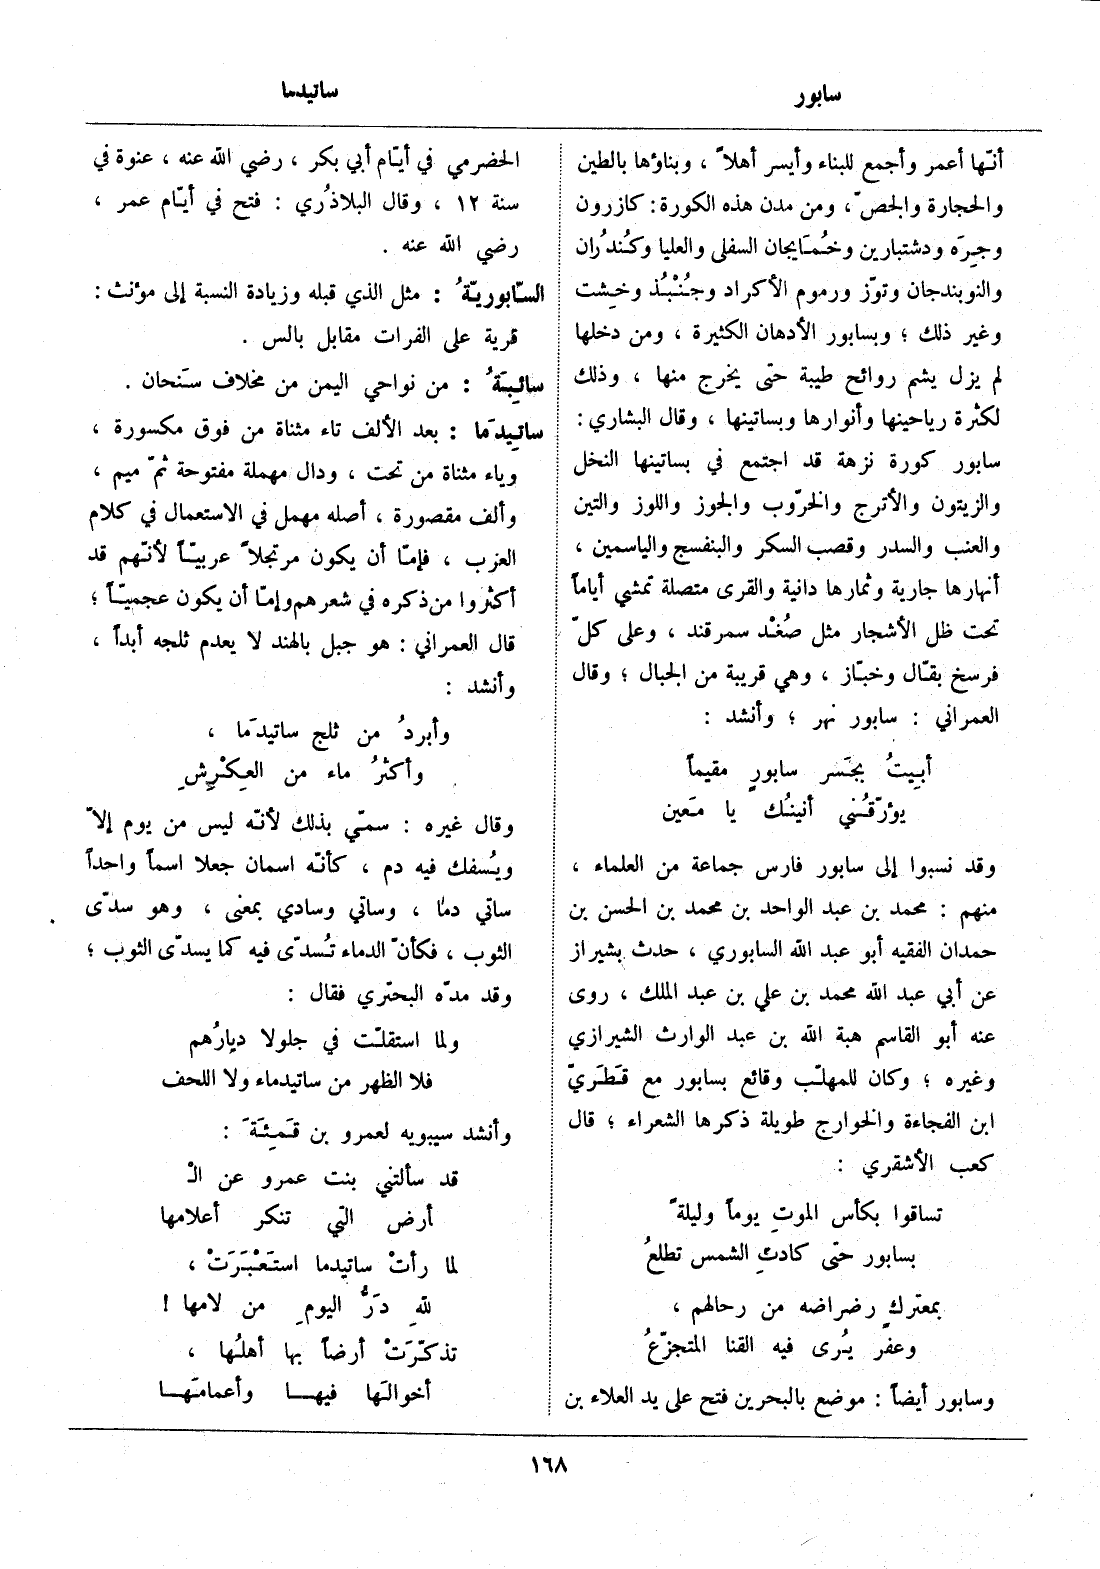 سابور
ساتيدما
أنّها أعمر وأجمع للبناء وأيسر أهلاً ، وبناؤها بالطين
والحجارة والجصّ، ومن مدن هذه الكورة: كازرون
وجِرَه ودشتبارين وخُمَايجان السفلى والعليا وكُندُران
والنوبندجان وتوّز ورموم الأكراد وجُنْبُذ وخِشت
وغير ذلك ؛ وبسابور الأدهان الكثيرة ، ومن دخلها
لم يزل يشم روائح طيبة حتى يخرج منها ، وذلك
لكثرة رياحينها وأنوارها وبساتينها ، وقال البشاري :
سابور كورة نزهة قد اجتمع في بساتينها النخل
والزيتون والأترج والخرّوب والجوز واللوز والتين
والعنب والسدر وقصب السكر والبنفسج والياسمين ،
أنهارها جارية وثمارها دانية والقرى متصلة تمشي أياماً
تحت ظل الأشجار مثل صُغْد سمرقند ، وعلى كلّ
فرسخ بقّال وخبّاز ، وهي قريبة من الجبال ؛ وقال
العمراني : سابور نهر ؛ وأنشد :
أبِيتُ بجَسر سابورٍ مقيماً
يؤرّقُني أنينُك يا مَعين
وقد نسبوا إلى سابور فارس جماعة من العلماء ،
منهم : محمد بن عبد الواحد بن محمد بن الحسن بن
حمدان الفقيه أبو عبد الله السابوري ، حدث بشيراز
عن أبي عبد الله محمد بن علي بن عبد الملك ، روى
عنه أبو القاسم هبة الله بن عبد الوارث الشيرازي
وغيره ؛ وكان للمهلّب وقائع بسابور مع قَطَريّ
ابن الفجاءة والخوارج طويلة ذكرها الشعراء ؛ قال
كعب الأشقري :
تساقوا بكأس الموتِ يوماً وليلةً
بسابور حتّى كادتِ الشمس تطلعُ
بمعتركٍ رضراضه من رحالهم ،
وعفرٍ يُرى فيه القنا المتجزّعُ
وسابور أيضاً : موضع بالبحرين فتح على يد العلاء بن
الحضرمي في أيّام أبي بكر ، رضي الله عنه ، عنوة في
سنة ١٢ ، وقال البلاذُري : فتح في أيّام عمر ،
رضي الله عنه .
السّابوريّةُ : مثل الذي قبله وزيادة النسبة إلى مؤنث :
قرية على الفرات مقابل بالس .
سائِبَةُ : من نواحي اليمن من مخلاف سَنحان .
ساتِيدَمَا : بعد الألف تاء مثناة من فوق مكسورة ،
وياء مثناة من تحت ، ودال مهملة مفتوحة ثمّ ميم ،
وألف مقصورة ، أصله مهمل في الاستعمال في كلام
العزب ، فإمّا أن يكون مرتجلاً عربيّاً لأنّهم قد
أكثروا من ذكره في شعرهم وإمّا أن يكون عجميّاً ؛
قال العمراني : هو جبل بالهند لا يعدم ثلجه أبداً ،
وأنشد :
وأبردُ من ثلج ساتيدَما ،
وأكثرُ ماء من العِكْرِشِ
وقال غيره : سمّي بذلك لأنّه ليس من يوم إلاّ
ويُسفك فيه دم ، كأنّه اسمان جعلا اسماً واحداً
ساتي دما ، وساتي وسادي بمعنى ، وهو سدّى
الثوب ، فكأنّ الدماء تُسدّى فيه كما يسدّى الثوب ؛
وقد مدّه البحتري فقال :
ولما استقلّت في جلولا ديارُهم
فلا الظهر من ساتيدماء ولا اللحف
وأنشد سيبويه لعمرو بن قَمِئَةَ :
قد سألتني بنت عمرو عن الْ
أرض الّتي تنكر أعلامها
لما رأتْ ساتيدما استَعْبَرَتْ ،
للهِ دَرُّ اليومِ من لامها !
تذكّرَتْ أرضاً بها أهلُها ،
أخوالَها فيهــا وأعمامَهــا
١٦٨